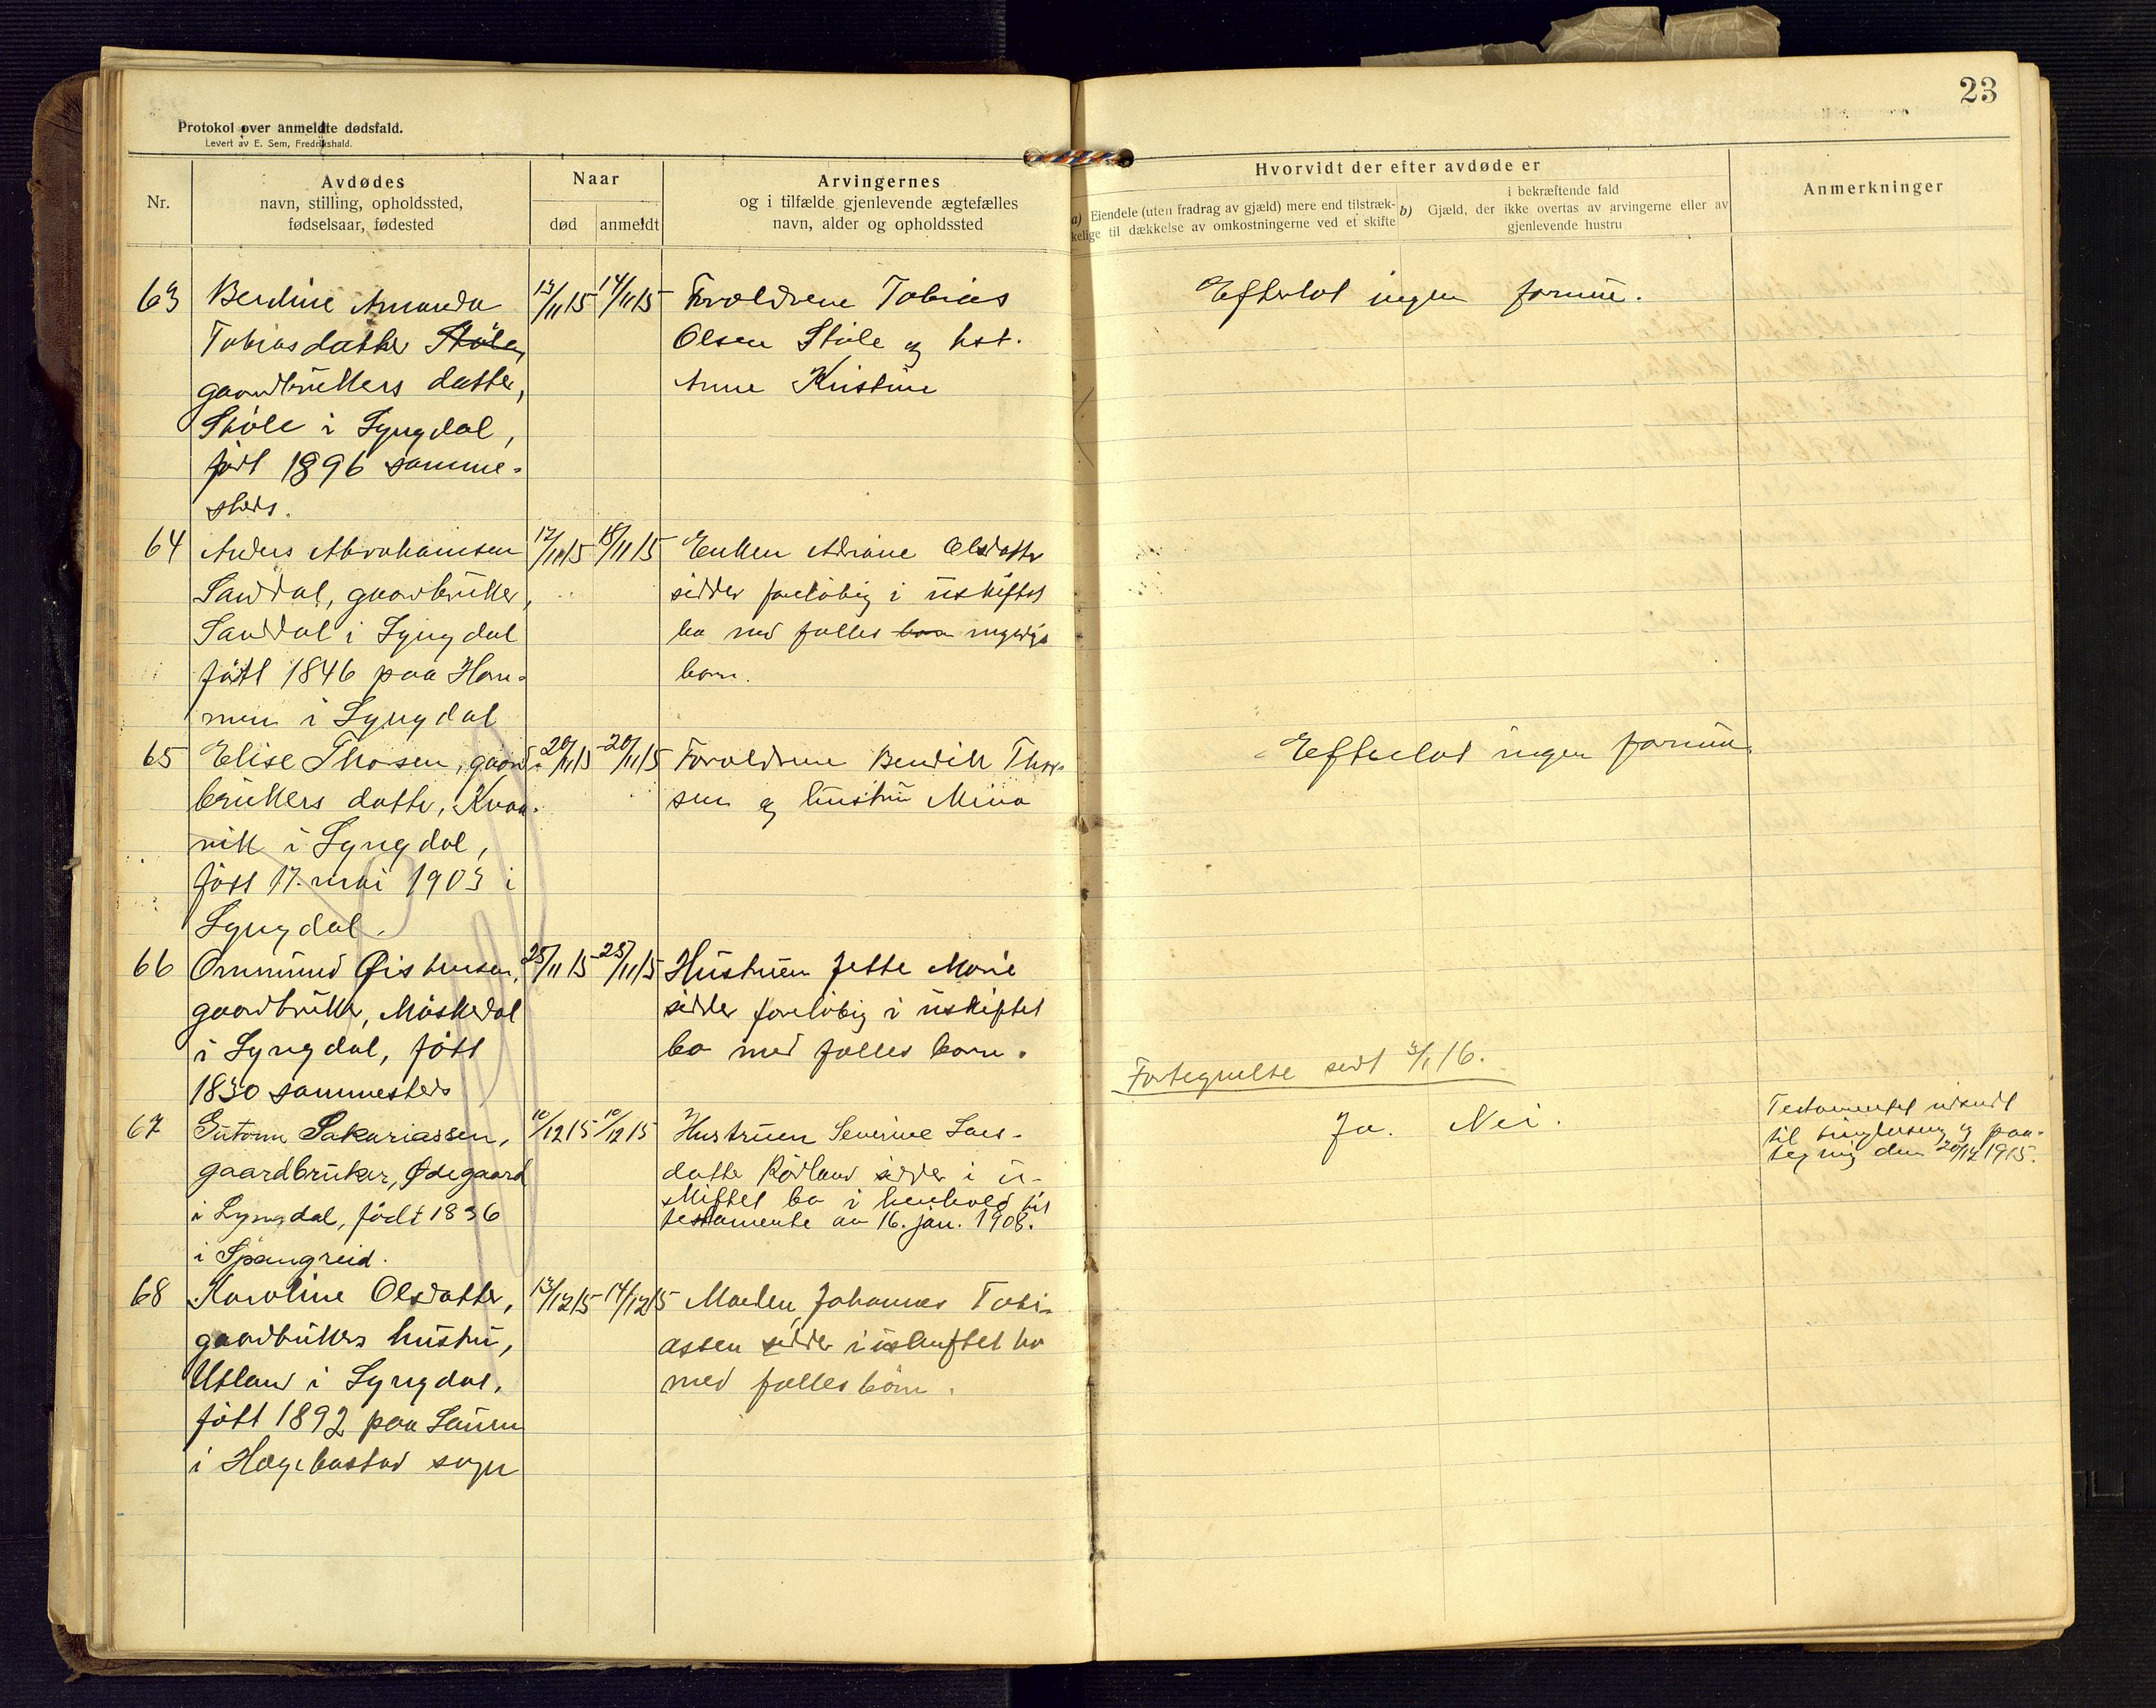 23
Protokol over anmeldte dødsfald.
Levert av E. Sem, Fredrikshald.
Nr.
Avdødes
navn, stilling, opholdssted,
fødselsaar, fødested
Naar
død
anmeldt
Arvingernes
og i tilfælde gjenlevende ægtefælles
navn, alder og opholdssted
Hvorvidt der efter avdøde er
a) Eiendele (uten fradrag av gjæld) mere end tilstræk-
kelige til dækkelse av omkostningerne ved et skifte
i bekræftende fald
b) Gjæld, der ikke overtas av arvingerne eller av
gjenlevende hustru
Anmerkninger
63
Berdine Amanda
Tobiasdatter Støle,
gaardbrukers datter,
Støle i Lyngdal,
født 1896 samme-
steds.
13/11 15
14/11 15
Forældrene Tobias
Olsen Støle og hst.
Anne Kristine
Efterlot ingen formue.
64
Anders Abrahamsen
Sanddal, gaardbruker,
Sanddal i Lyngdal
født 1846 paa Hom-
men i Lyngdal
17/11 15
18/11 15
Enken Adrine Olsdatter
sidder foreløbig i uskiftet
bo med fælles barn myndige
børn.
65
Elise Thorsen, gaard-
brukers datter, Kvaa-
vik i Lyngdal,
født 17. mai 1903 i
Lyngdal.
20/11 15
20/11 15
Forældrene Bendik Thor-
sen og hustru Mina
Efterlot ingen formue
66
Ommund Øistensen,
gaardbruker, Møskedal
i Lyngdal, født
1830 sammesteds
25/11 15
25/11 15
Hustruen Jette Marie
sidder foreløbig i uskiftet
bo med fælles børn.
Fortegnelse sedt 3/1 16.
67
Gutorm Sakariassen,
gaardbruker, Ødegaard
i Lyngdal, født 1836
i Spangreid.
10/12 15
10/12 15
Hustruen Severine Lars-
datter Rødland sidder i u-
skiftet bo i henhold til
testamente av 16. jan. 1908.
Ja. Nei.
Testamentet utsendt
til tinglysning og paa-
tegning den 20/12 1915.
68
Karoline Olsdatter,
gaardbrukers hustru,
Utland i Lyngdal,
født 1892 paa Lauen
i Hægebostad sogn
13/12 15
14/12 15
Manden, Johannes Tobi-
assen sidder i uskiftet bo
med fælles børn.